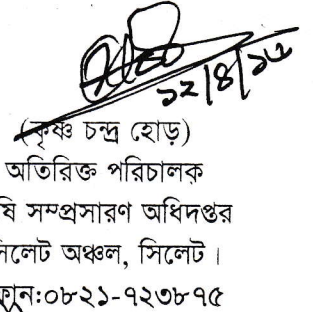 ১২/৪/১৫
(কৃষ্ণ চন্দ্র হোড়)
অতিরিক্ত পরিচালক
ষি সম্প্রসারণ অধিদপ্তর
সিলেট অঞ্চল, সিলেট।
ফোন:০৮২১-৭২৩৮৭৫